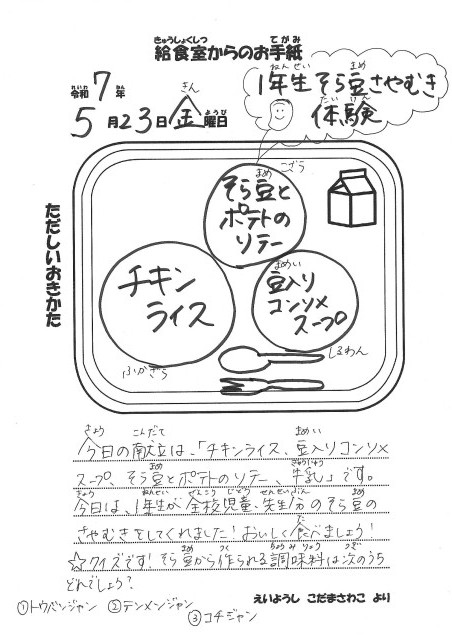 給食室からのお手紙
令和7年
5月23日金曜日
1年生そら豆さやむき
体験
ただしいおきかた
こざら
そら豆と
ポテトの
ソテー
チキン
ライス
ふかざら
豆入り
コンソメ
スープ
しるわん
今日の献立は、「チキンライス、豆入りコンソメ
スープ、そら豆とポテトのソテー、牛乳」です。
今日は、1年生が全校児童、先生分のそら豆の
さやむきをしてくれました!おいしく食べましょう!
☆クイズです!そら豆から作られる調味料は次のうち
どれでしょう?
①トウバンジャン ②テンメンジャン
③コチジャン
えいようし こだまさわこ より